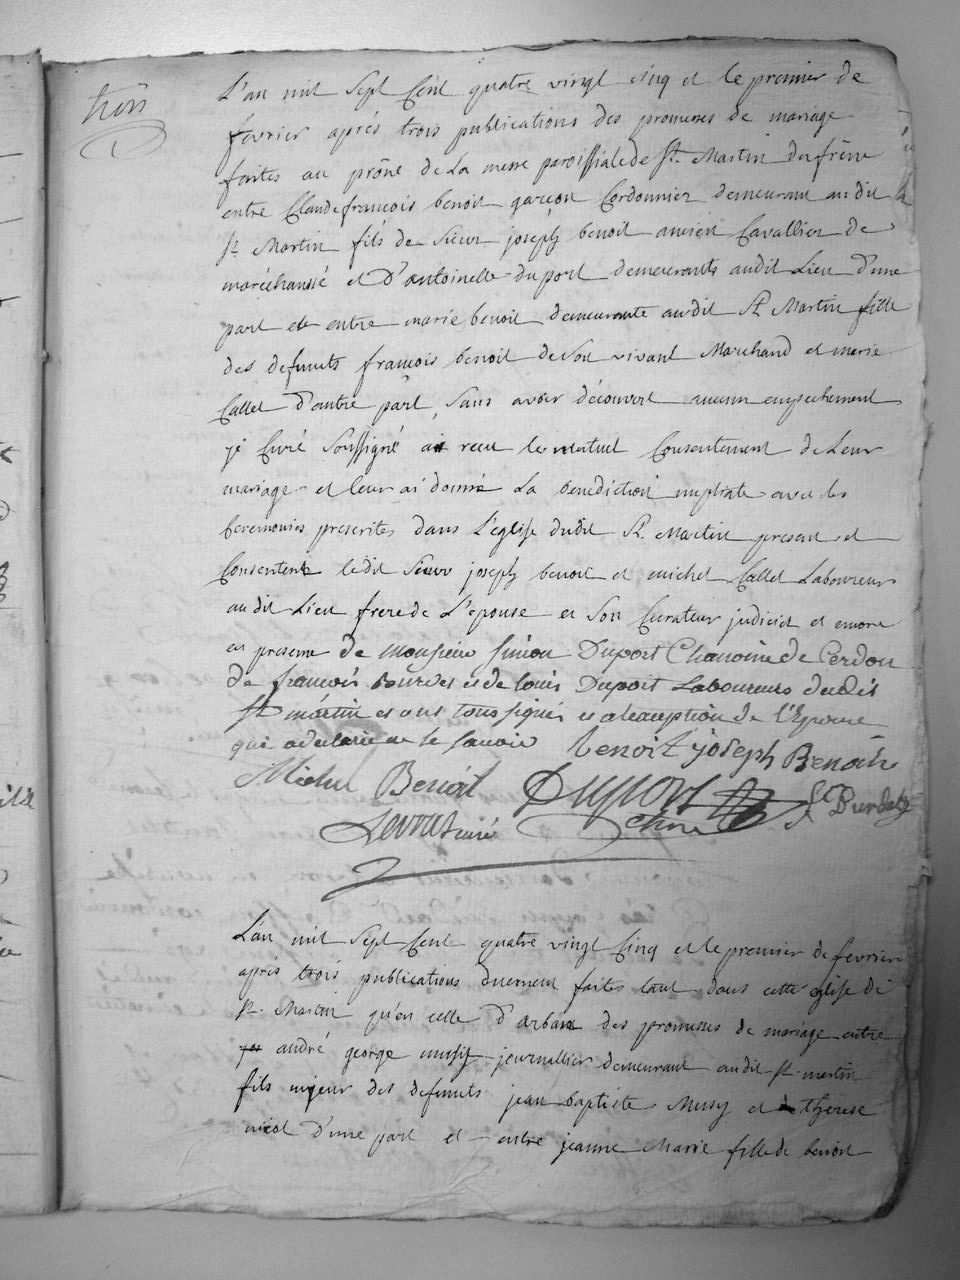 trois
L'an mil sept cent quatre vingt cinq et le premier de
fevrier aprés trois publications des promesses de mariage
faites au prône de La messe paroissiale de St. Martin du frêne
entre Claude francois benoit garçon Cordonnier demeurant audit
St Martin fils de sieur joseph benoit ancien Cavallier de
maréchaussé et D'antoinette duport demeurants audit Lieu d'une
part et entre marie benoit demeurante audit St Martin fille
des defunts francois benoit de son vivant Marchand et marie
Callet d'autre part, sans avoir découvert aucun empechement
je Curé soussigné ai recu le mutuel Consentement de Leur
mariage et leur ai donné La benediction nuptiale avec les
Ceremonies prescrites dans L'église dudit St. Martin present et
Consentent ledit sieur joseph benoit et michel Callet Laboureur
audit Lieu frere de L'epouse et son Curateur judiciel et encore
en presence de monsieur simon Duport Chanoine de Cerdon
de francois Bourdes et de louis Duport Laboureurs dudit
St martin et ont tous signés a l'exception de l'Epouse
qui a declaré ne le savoir Benoit joseph Benoit
Michel Benoit Duport
curé
L'an mil sept Cent quatre vingt Cinq et le premier de fevrier
aprés trois publications duement faites tant dans cette eglise de
St. Martin qu'en celle d'arbant des promesses de mariage entre
andré george musy journallier demeurant audit St martin
fils majeur des defunts jean baptiste Musy et therese
nicol d'une part et entre jeanne Marie fille de benoit